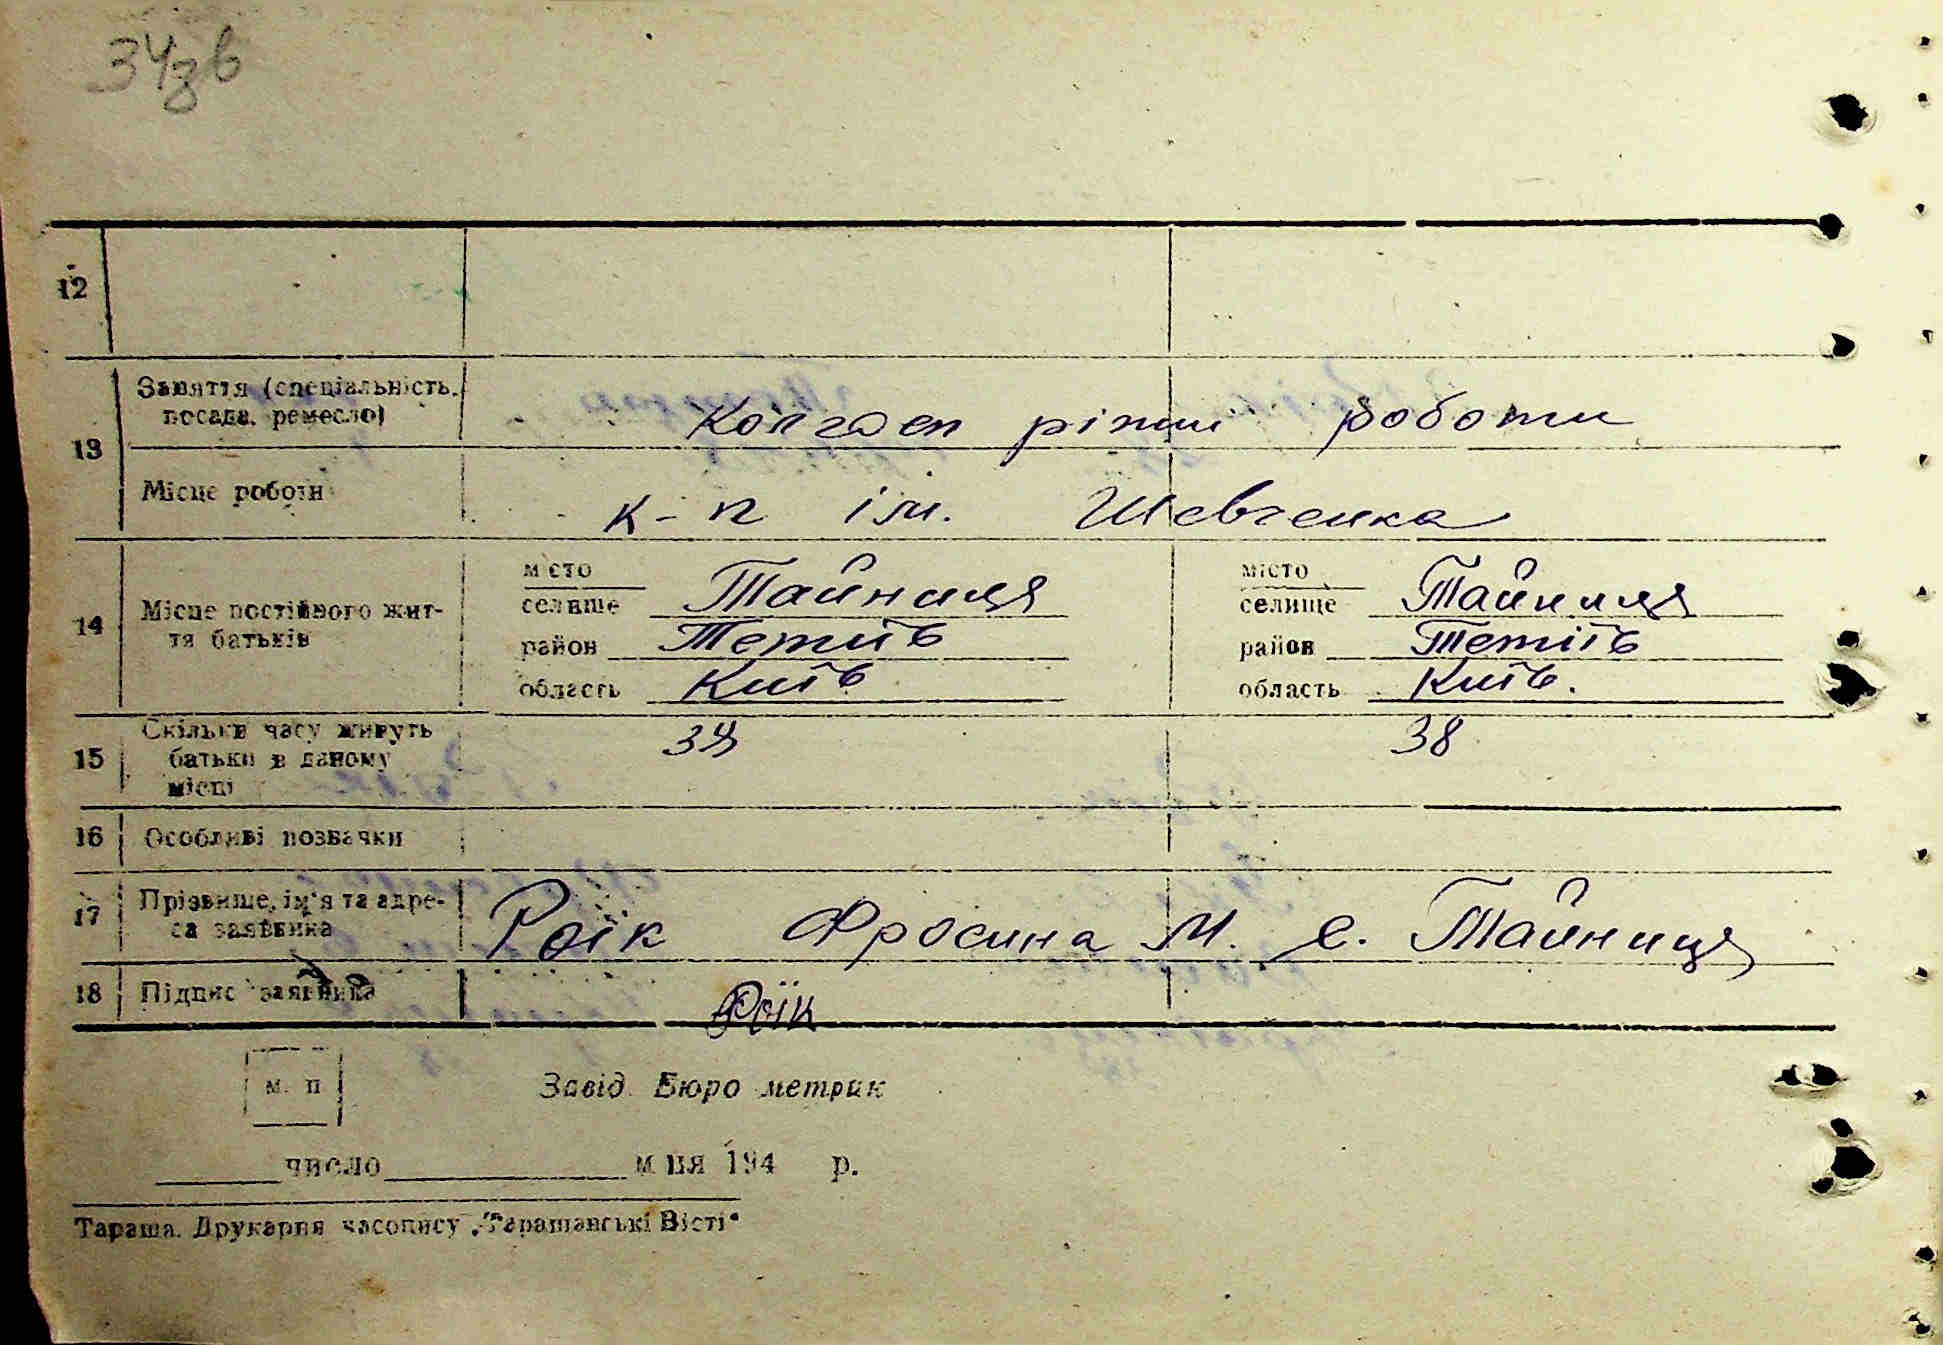 34зв
12
13 Заняття (спеціальність,
посада, ремесло)
роботи
Місце роботи к-п ім. Шевченка
14 Місце постійного жит-
тя батьків
місто місто
селище Тайниця селище Тайниця
район Тетиїв район Тетіїв
область Київ область Київ.
15 Скільки часу живуть
батьки в даному
місці
38
16 Особливі позначки
17 Прізвище, ім'я та адре-
са заявника
Роїк Фросина М. с. Тайниця
18 Підпис заявника Роїк
м. п Завід. Бюро метрик
число м ця 194 р.
Тараща. Друкарня часопису „Таращавські Вісті"